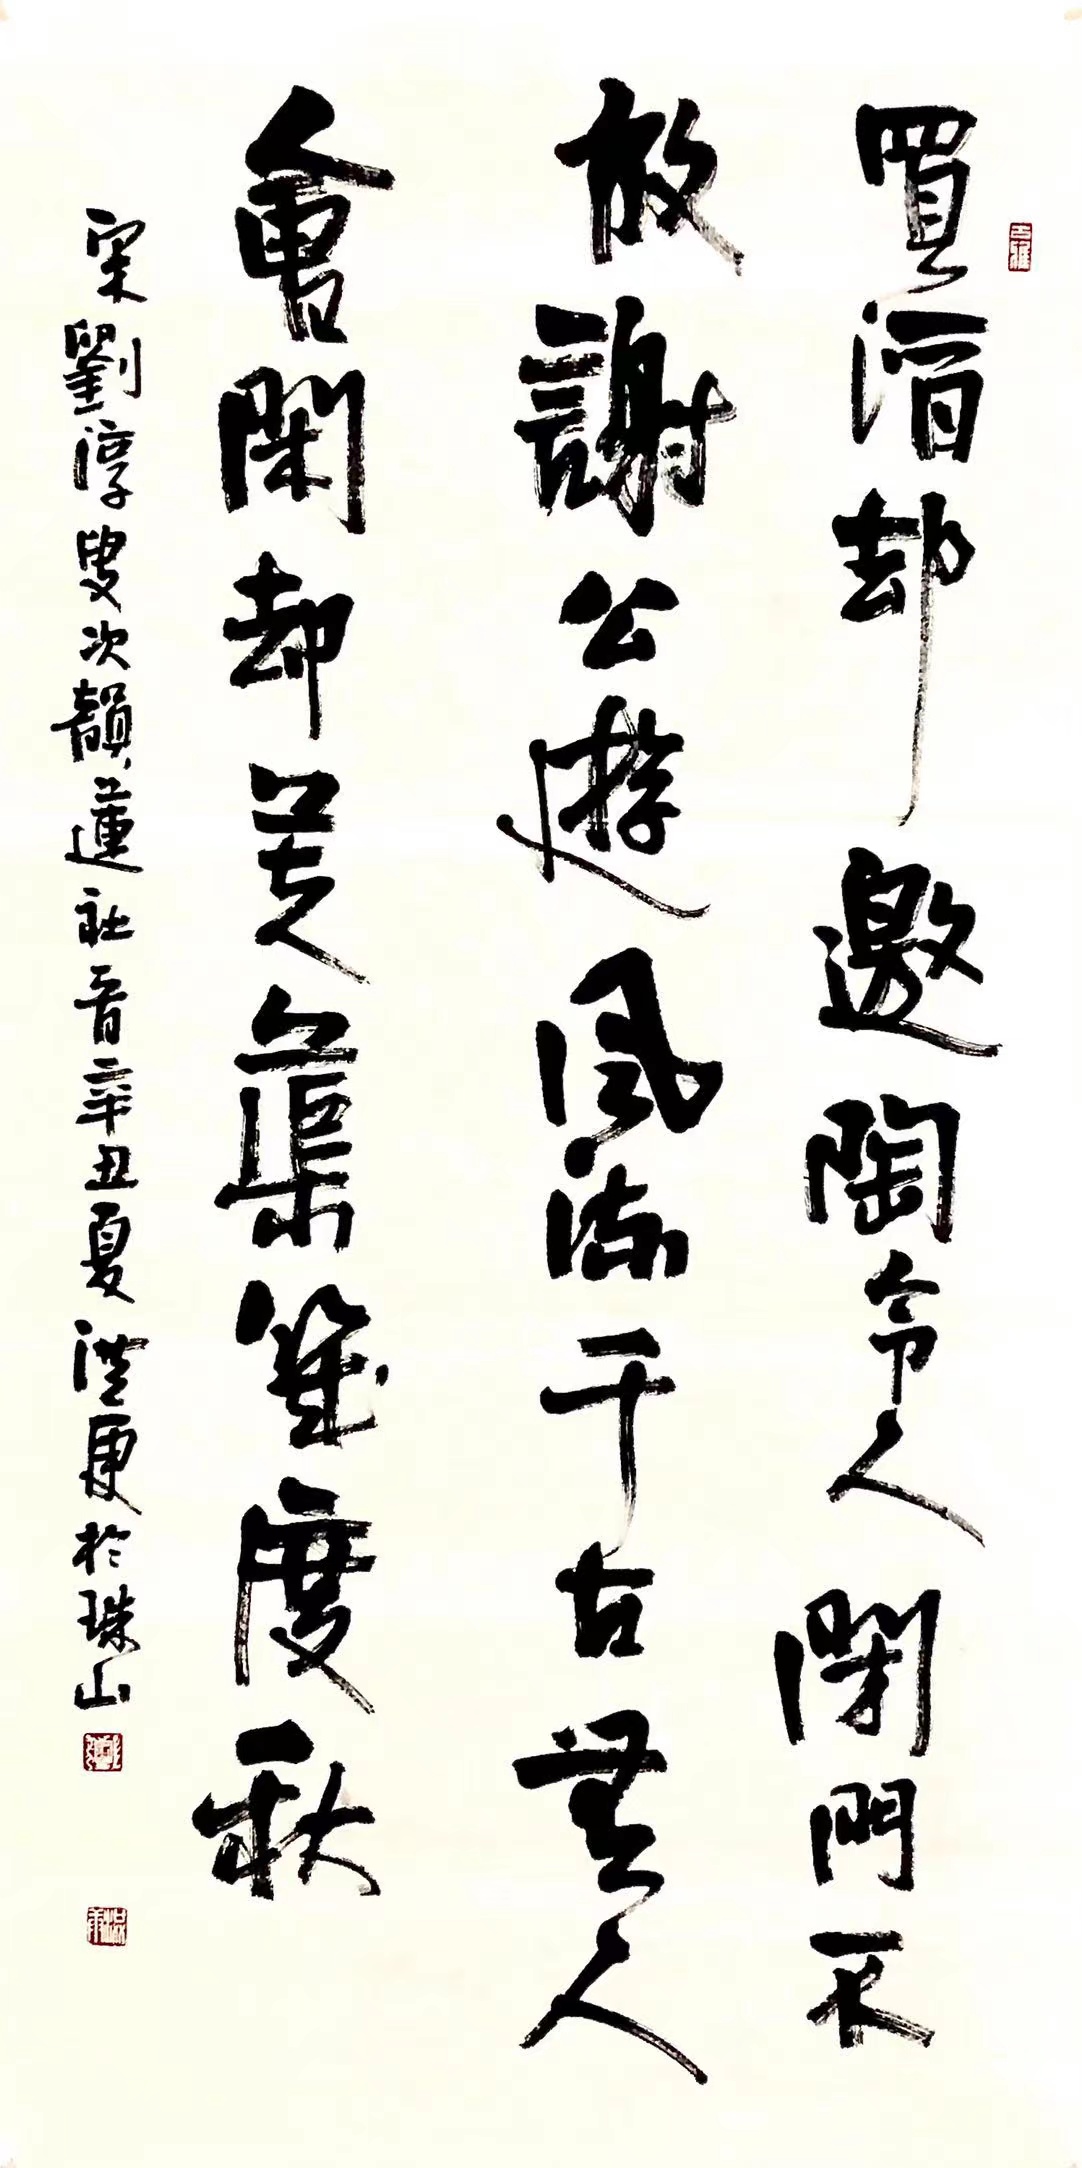 買酒却邀陶令入閉門不
放謝公遊風流千古無人
會閑却芙蕖幾度秋
宋劉淳叟次韻蓮社音辛丑夏於珠山